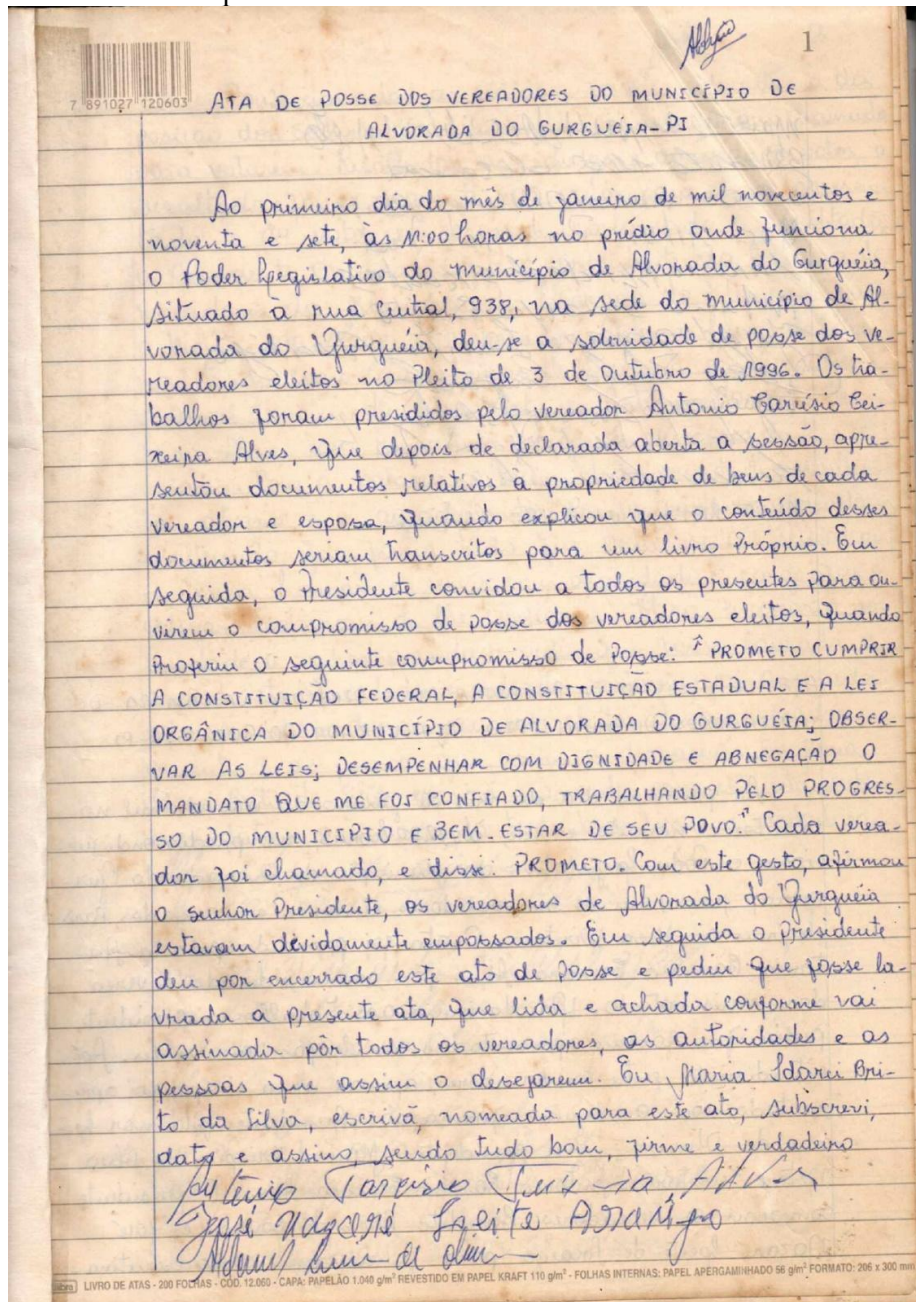 1
7 891027 120603
ATA DE POSSE DOS VEREADORES DO MUNICÍPIO DE
ALVORADA DO GURGUÉIA-PI
Ao primeiro dia do mês de janeiro de mil novecentos e
noventa e sete, às 11:00 horas no prédio onde funciona
o Poder Legislativo do município de Alvorada do Gurguéia,
situado à rua Central, 938, na sede do município de Al-
vorada do Gurguéia, deu-se a solenidade de posse dos ve-
readores eleitos no Pleito de 3 de Outubro de 1996. Os tra-
balhos foram presididos pelo vereador Antonio Tarcísio Tei-
xeira Alves, que depois de declarada aberta a sessão, apre-
sentou documentos relativos à propriedade de bens de cada
vereador e esposa, quando explicou que o conteúdo desses
documentos seriam transcritos para um livro Próprio. Em
seguida, o Presidente convidou a todos os presentes para ou-
virem o compromisso de posse dos vereadores eleitos, quando
Proferiu o seguinte compromisso de Posse: "PROMETO CUMPRIR
A CONSTITUIÇÃO FEDERAL, A CONSTITUIÇÃO ESTADUAL E A LEI
ORGÂNICA DO MUNICÍPIO DE ALVORADA DO GURGUÉIA; OBSER-
VAR AS LEIS; DESEMPENHAR COM DIGNIDADE E ABNEGAÇÃO O
MANDATO QUE ME FOI CONFIADO, TRABALHANDO PELO PROGRES-
SO DO MUNICIPIO E BEM-ESTAR DE SEU POVO." Cada verea-
dor foi chamado, e disse: PROMETO. Com este gesto, afirmou
o senhor Presidente, os vereadores de Alvorada do Gurguéia
estavam devidamente empossados. Em seguida o Presidente
deu por encerrado este ato de Posse e pediu que fosse la-
vrada a presente ata, que lida e achada conforme vai
assinada por todos os vereadores, as autoridades e as
pessoas que assim o desejarem. Eu Maria Idarci Bri-
to da Silva, escrivã, nomeada para este ato, subscrevi,
dato e assino, sendo tudo bom, firme e verdadeiro
Antonio Tarcísio Teixeira Alves
José Nazaré Leite Araújo
LIVRO DE ATAS - 200 FOLHAS - CÓD. 12.060 - CAPA: PAPELÃO 1.040 g/m² REVESTIDO EM PAPEL KRAFT 110 g/m² - FOLHAS INTERNAS: PAPEL APERGAMINHADO 56 g/m² FORMATO: 206 x 300 mm